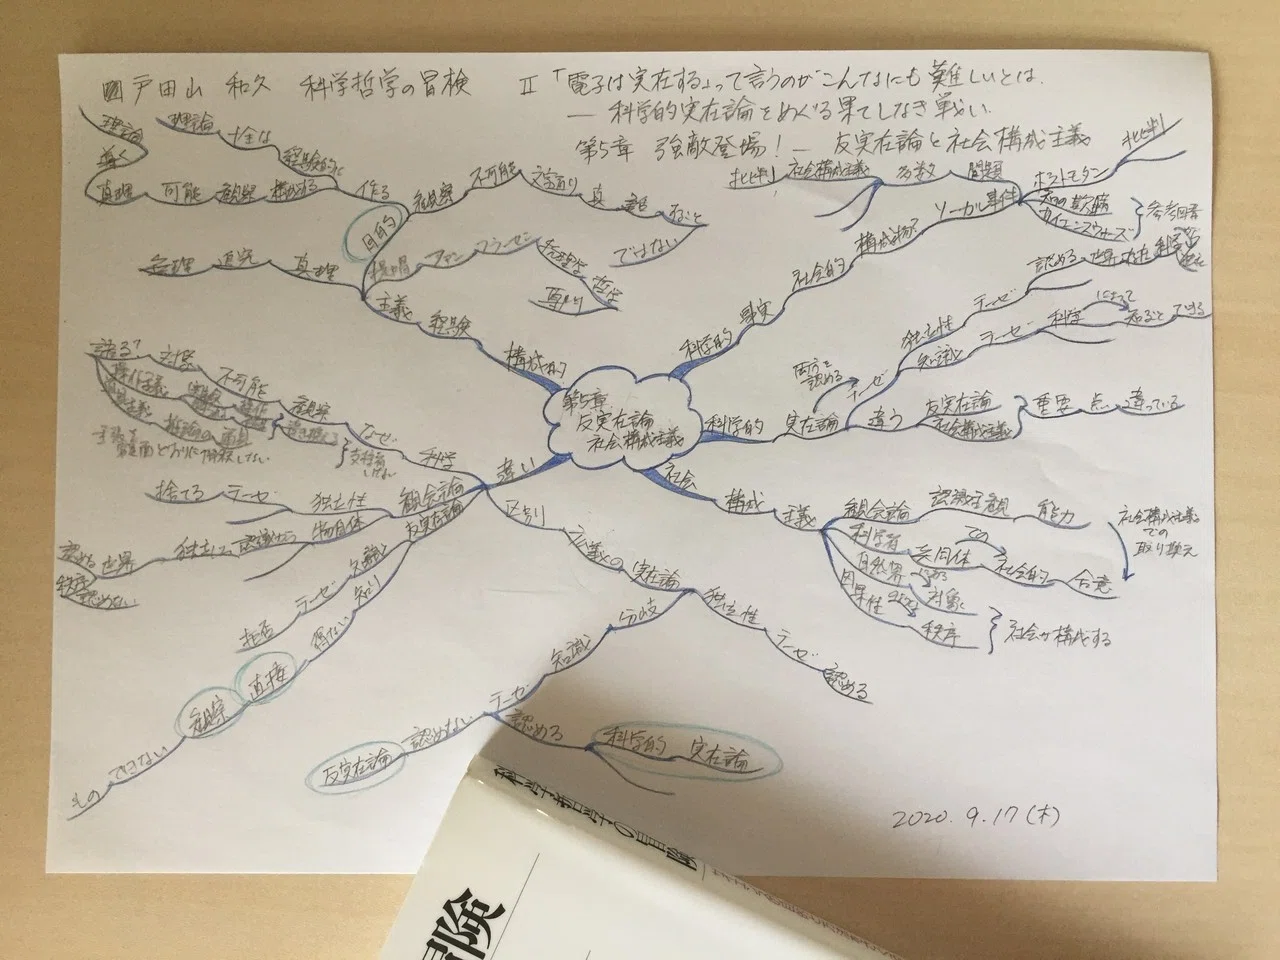 戸田山 和久 科学哲学の冒検 II 「電子は実在する」って言うのがこんなにも難しいとは
— 科学的実在論をめぐる果てしなき戦い
第5章 強敵登場! — 反実在論と社会構成主義
第5章
反実在論
社会構成主義
構成的 経験 主義
目的 作る 経験的に 十全な 理論
構成する 観察 可能 真理 導く 理論
観察 不可能 文字通り 真 など
ではない
提唱 ファン フラーセン 物理学 哲学
専門
真理 追究
科学的 事実 社会的 構成物 ソーカル事件
問題 多数 社会構成主義 批判
ポストモダン 批判
知の欺瞞
サイエンスウォーズ
参考図書
科学的 実在論 テーゼ
両方を
認める
独立性 テーゼ 認める 世界 存在
知識 テーゼ 科学 によって 知ること できる
違う 反実在論
社会構成主義
重要 点 違っている
社会 構成 主義
観念論 認識主観 能力
科学者 共同体 での 社会的 合意
自然界 対象
因果性 秩序
社会が構成する
社会構成主義
での
取り換え
違い
科学 なぜ 観察 不可能 対象 語る?
支持者
推論の道具
観念論 独立性 テーゼ 捨てる
物自体 認識から 独立 世界 認める
秩序
認めない
反実在論 知識 テーゼ 拒否
知り 得ない 直接 観察 できない もの
区別 広義の 実在論
独立性 テーゼ 認める
分岐 知識 テーゼ
認めない 反実在論
認める 科学的 実在論
2020. 9. 17 (木)
科学哲学の冒険
冒険